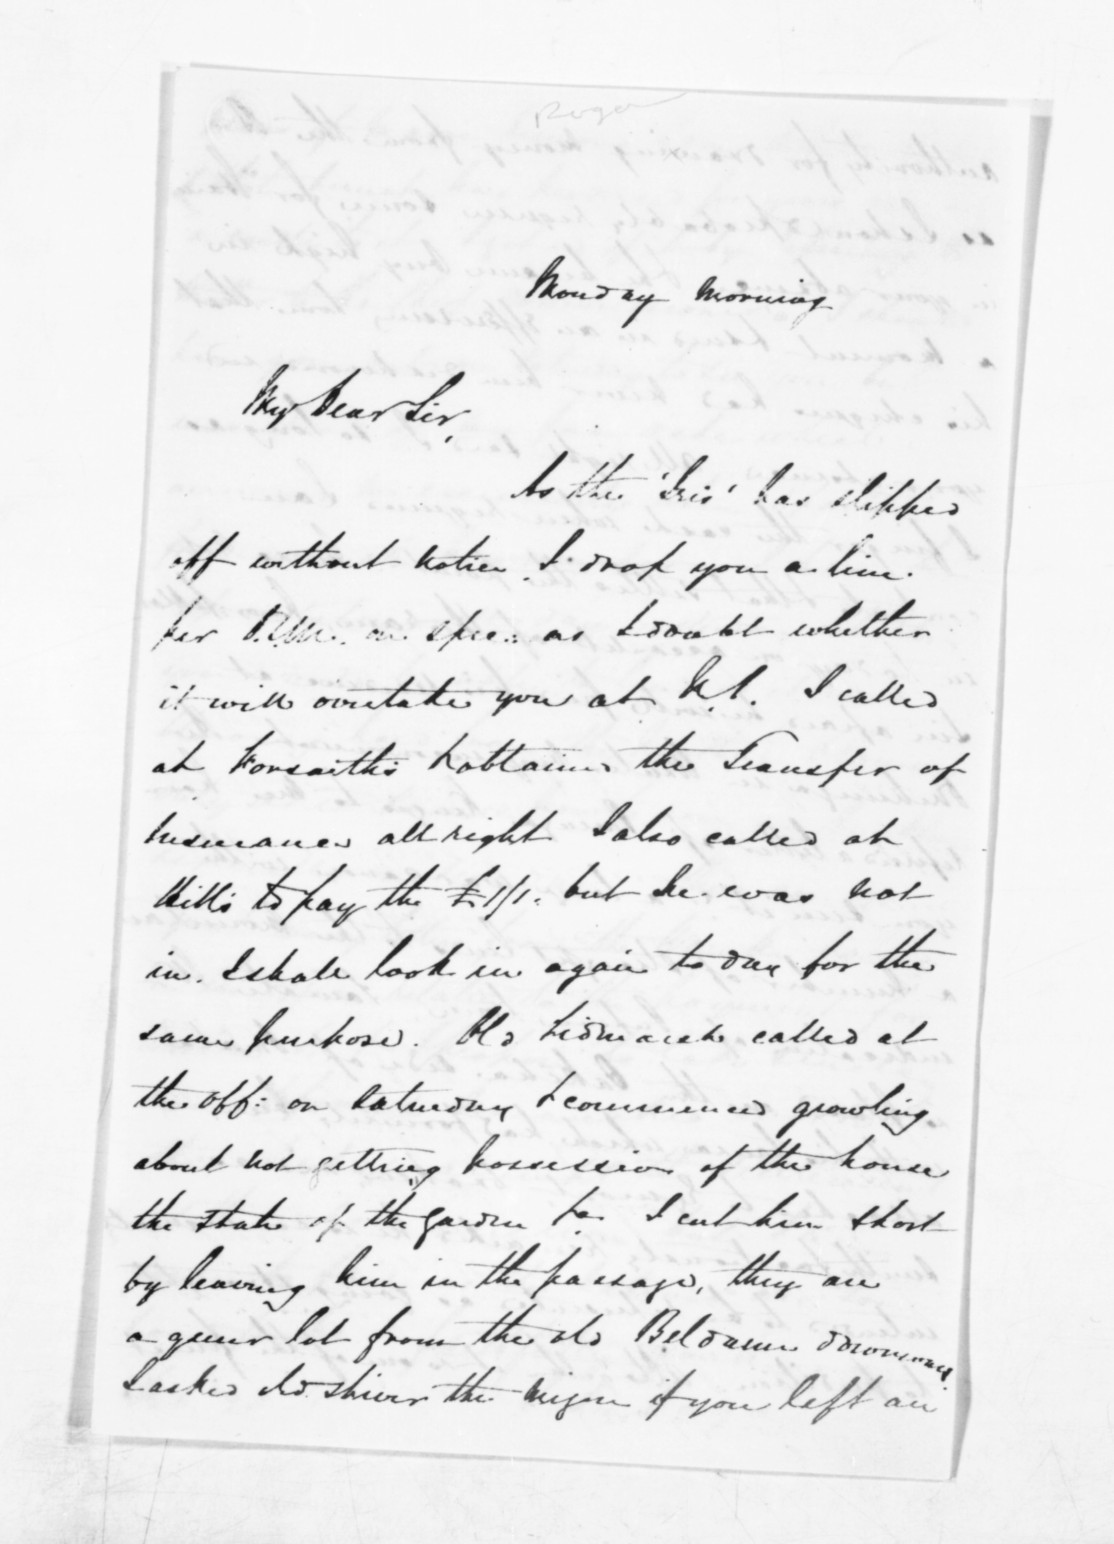 Rogan
Monday Morning
My Dear Sir,
As the 'Iris' has slipped
off without notice, I drop you a line
per as I doubt whether
it will overtake you at N.P. I called
at Forsaith's & obtained the Transfer of
Insurance all right I also called at
Hill's to pay the £1/1. but he was not
in. I shall look in again to day for the
same purpose. Old Lidmarsh called at
the Off: on Saturday & commenced growling
about not getting possession of the house
the state of the garden &c. I cut him short
by leaving him in the passage, they are
a queer lot from the old Beldame downwards.
I asked Old shiver the if you left an